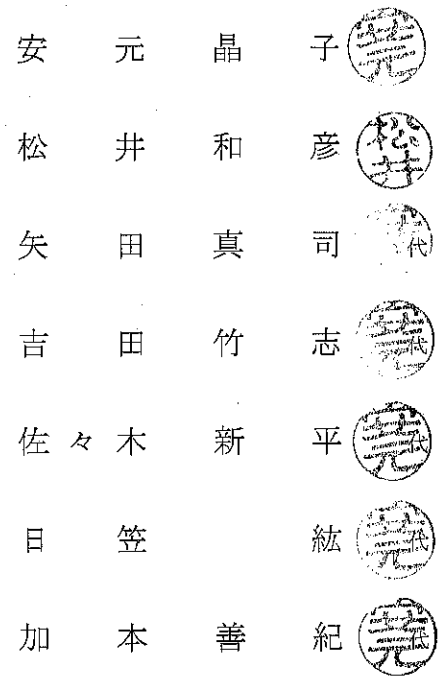 安元晶子
松井和彦 松井
矢田真司 代
吉田竹志 代
佐々木新平 代
日笠紘 代
加本善紀 代